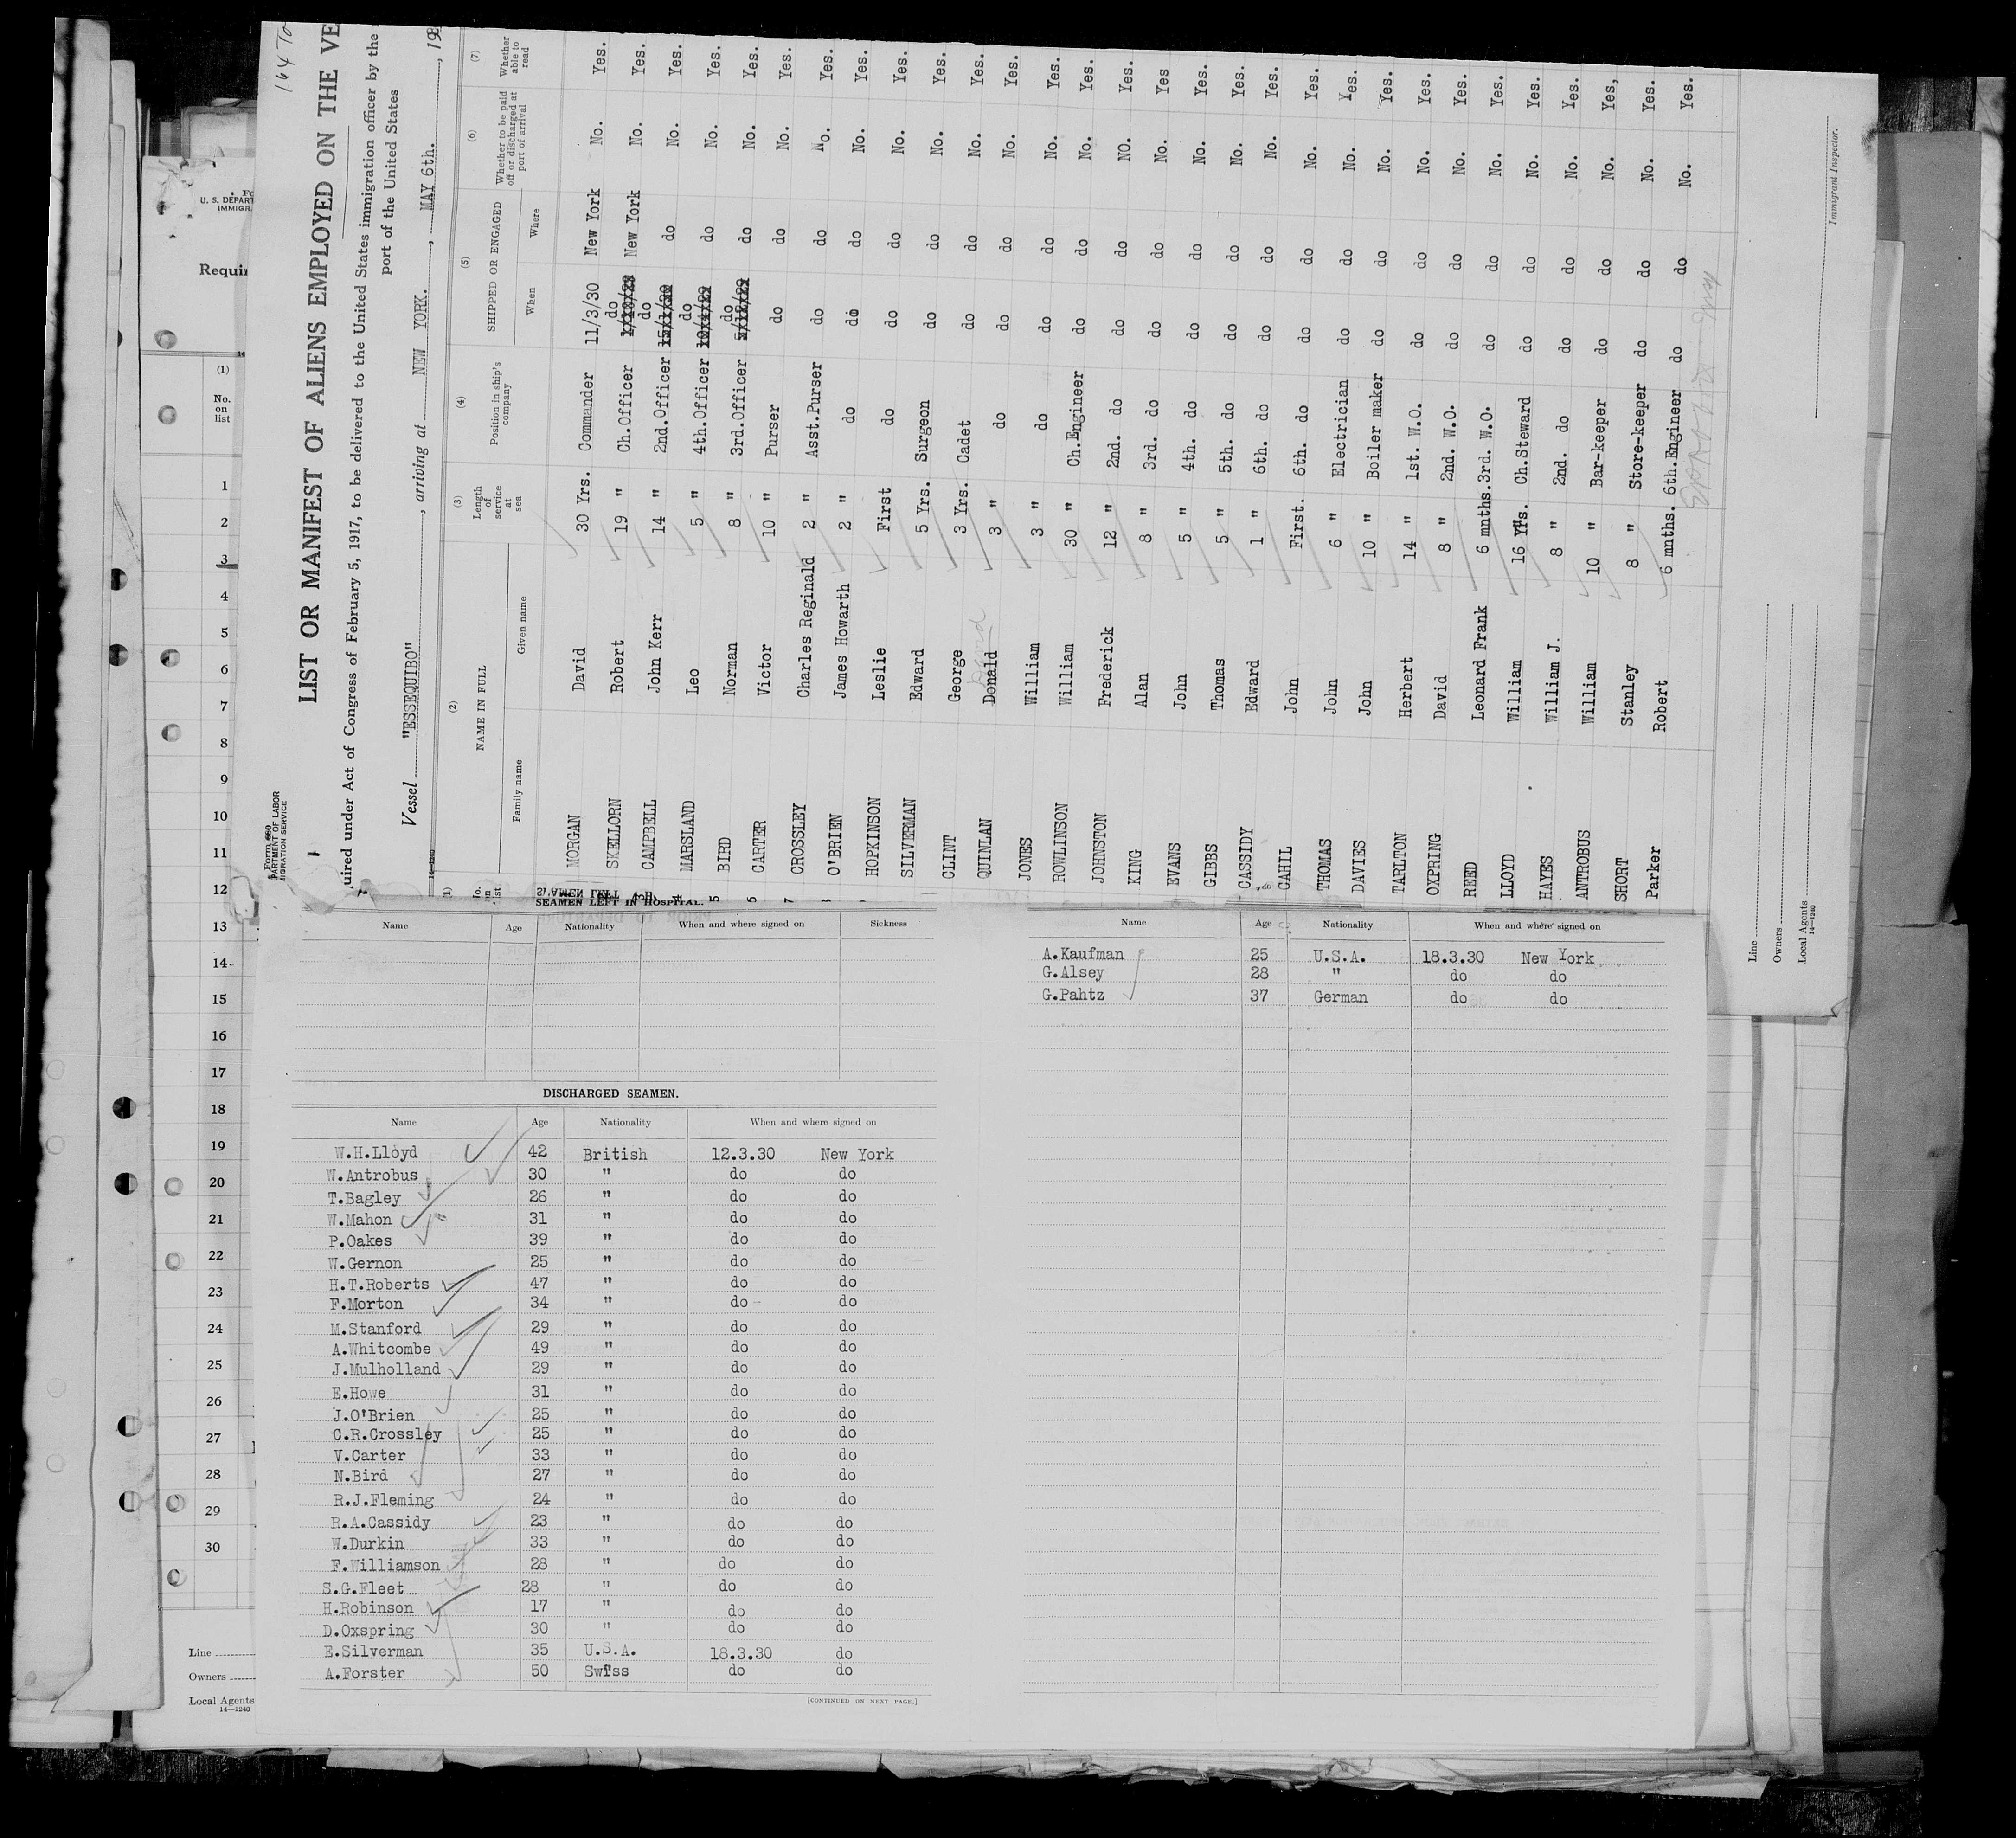 164
LIST OR MANIFEST OF ALIENS EMPLOYED ON THE VE
uired under Act of Congress of February 5, 1917, to be delivered to the United States immigration officer by the
port of the United States
Vessel "ESSEQUIBO", arriving at NEW YORK., MAY 6th., 193
PARTMENT OF LABOR
MIGRATION SERVICE
14—1240
(1) (2) (3) (4) (5) (6) (7)
NAME IN FULL
Family name Given name
Length of service at sea
Position in ship's company
SHIPPED OR ENGAGED
When Where
Whether to be paid off or discharged at port of arrival
Whether able to read
MORGAN David 30 Yrs. Commander 11/3/30 New York No. Yes.
SKELLORN Robert 19 " Ch.Officer do New York No. Yes.
CAMPBELL John Kerr 14 " 2nd.Officer do do No. Yes.
MARSLAND Leo 5 " 4th.Officer do do No. Yes.
BIRD Norman 8 " 3rd.Officer do do No. Yes.
CARTER Victor 10 " Purser do do No. Yes.
CROSSLEY Charles Reginald 2 " Asst.Purser do do No. Yes.
O'BRIEN James Howarth 2 " do do do No. Yes.
HOPKINSON Leslie First do do do No. Yes.
SILVERMAN Edward 5 Yrs. Surgeon do do No. Yes.
CLINT George 3 Yrs. Cadet do do No. Yes.
QUINLAN Donald 3 " do do do No. Yes.
JONES William 3 " do do do No. Yes.
ROWLINSON William 30 " Ch.Engineer do do No. Yes.
JOHNSTON Frederick 12 " 2nd. do do do NO. Yes.
KING Alan 8 " 3rd. do do do No. Yes
EVANS John 5 " 4th. do do do No. Yes.
GIBBS Thomas 5 " 5th. do do do No. Yes.
CASSIDY Edward 1 " 6th. do do do No. Yes.
CAHIL John First. 6th. do do do No. Yes.
THOMAS John 6 " Electrician do do No. Yes.
DAVIES John 10 " Boiler maker do do No. Yes.
TARLTON Herbert 14 " 1st. W.O. do do No. Yes.
OXPRING David 8 " 2nd. W.O. do do No. Yes.
REED Leonard Frank 6 mnths. 3rd. W.O. do do No. Yes.
LLOYD William 16 Yrs. Ch.Steward do do No. Yes.
HAYES William J. 8 " 2nd. do do do No. Yes.
ANTROBUS William 10 " Bar-keeper do do No. Yes,
SHORT Stanley 8 " Store-keeper do do No. Yes.
Parker Robert 6 mnths. 6th.Engineer do do No. Yes.
Immigrant Inspector.
Line
Owners
Local Agents
14—1240
U. S. DEPART
IMMIGR
Requir
(1)
No.
on
list
1
2
3
4
5
6
7
8
9
10
11
12
13
14
15
16
17
18
19
20
21
22
23
24
25
26
27
28
29
30
Line
Owners
Local Agents
14—1240
SEAMEN LEFT IN HOSPITAL.
Name Age Nationality When and where signed on Sickness
DISCHARGED SEAMEN.
Name Age Nationality When and where signed on
W.H.Lloyd 42 British 12.3.30 New York
W.Antrobus 30 " do do
T.Bagley 26 " do do
W.Mahon 31 " do do
P.Oakes 39 " do do
W.Gernon 25 " do do
H.T.Roberts 47 " do do
F.Morton 34 " do do
M.Stanford 29 " do do
A.Whitcombe 49 " do do
J.Mulholland 29 " do do
E.Howe 31 " do do
J.O'Brien 25 " do do
C.R.Crossley 25 " do do
V.Carter 33 " do do
N.Bird 27 " do do
R.J.Fleming 24 " do do
R.A.Cassidy 23 " do do
W.Durkin 33 " do do
F.Williamson 28 " do do
S.G.Fleet 28 " do do
H.Robinson 17 " do do
D.Oxspring 30 " do do
E.Silverman 35 U.S.A. 18.3.30 do
A.Forster 50 Swiss do do
[CONTINUED ON NEXT PAGE.]
Name Age Nationality When and where signed on
A.Kaufman 25 U.S.A. 18.3.30 New York
G.Alsey 28 " do do
G.Pahtz 37 German do do